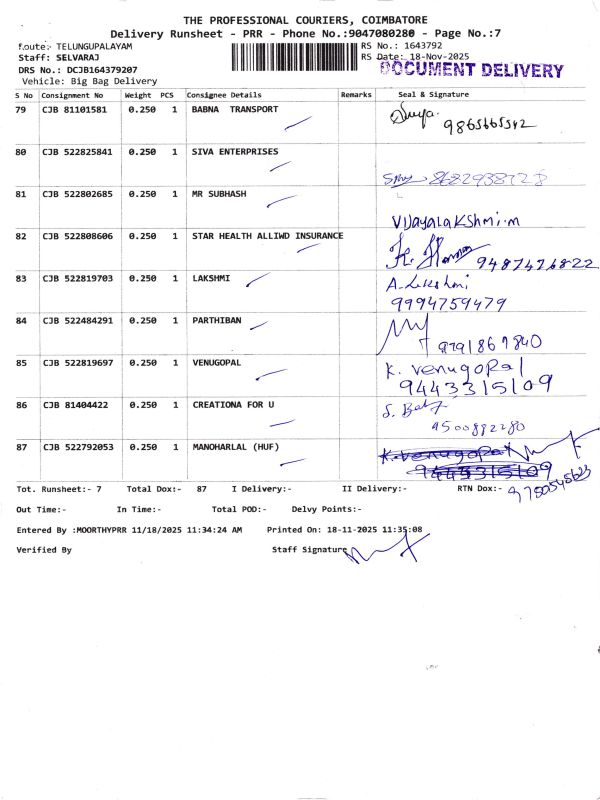 THE PROFESSIONAL COURIERS, COIMBATORE
Delivery Runsheet - PRR - Phone No.:9047080280 - Page No.:7
Route: TELUNGUPALAYAM
RS No.: 1643792
Staff: SELVARAJ
RS Date: 18-Nov-2025
DRS No.: DCJB164379207
DOCUMENT DELIVERY
Vehicle: Big Bag Delivery
S No Consignment No Weight PCS Consignee Details Remarks Seal & Signature
79 CJB 81101581 0.250 1 BABNA TRANSPORT
9865665542
80 CJB 522825841 0.250 1 SIVA ENTERPRISES
8682938728
81 CJB 522802685 0.250 1 MR SUBHASH
VIJAYALAKSHMI.M
82 CJB 522808606 0.250 1 STAR HEALTH ALLIWD INSURANCE
9487476822
83 CJB 522819703 0.250 1 LAKSHMI
A. Lekshmi
9994759479
84 CJB 522484291 0.250 1 PARTHIBAN
9791867840
85 CJB 522819697 0.250 1 VENUGOPAL
K. Venugopal
9443315109
86 CJB 81404422 0.250 1 CREATIONA FOR U
9500892280
87 CJB 522792053 0.250 1 MANOHARLAL (HUF)
K.venugopal
9443315109
Tot. Runsheet:- 7 Total Dox:- 87 I Delivery:- II Delivery:- RTN Dox:-
Out Time:- In Time:- Total POD:- Delvy Points:-
Entered By :MOORTHYPRR 11/18/2025 11:34:24 AM Printed On: 18-11-2025 11:35:08
Verified By Staff Signature